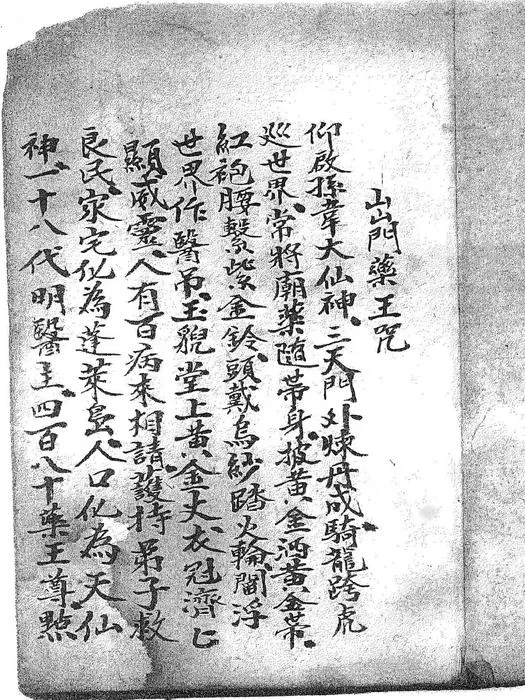 山門藥王咒
仰啟孫韋大仙神、三天門外煉丹成騎龍跨虎
巡世界、常將廟藥隨帶身、披黃金洒黃金帶、
紅袍腰繫紫金鈴、頭戴烏紗踏火輪、閻浮
世界作醫吊、玉貎堂上黃金丈、衣冠濟
顯威靈、人有百病来相請、護持弟子救
良民、家宅化為蓬萊島、人口化為天仙
神、一十八代明醫主、四百八十藥王尊、點